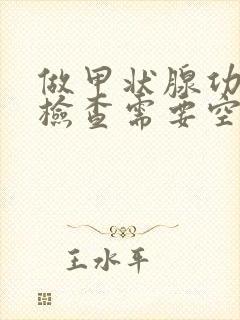 做甲状腺功
檢查需要空
王水平